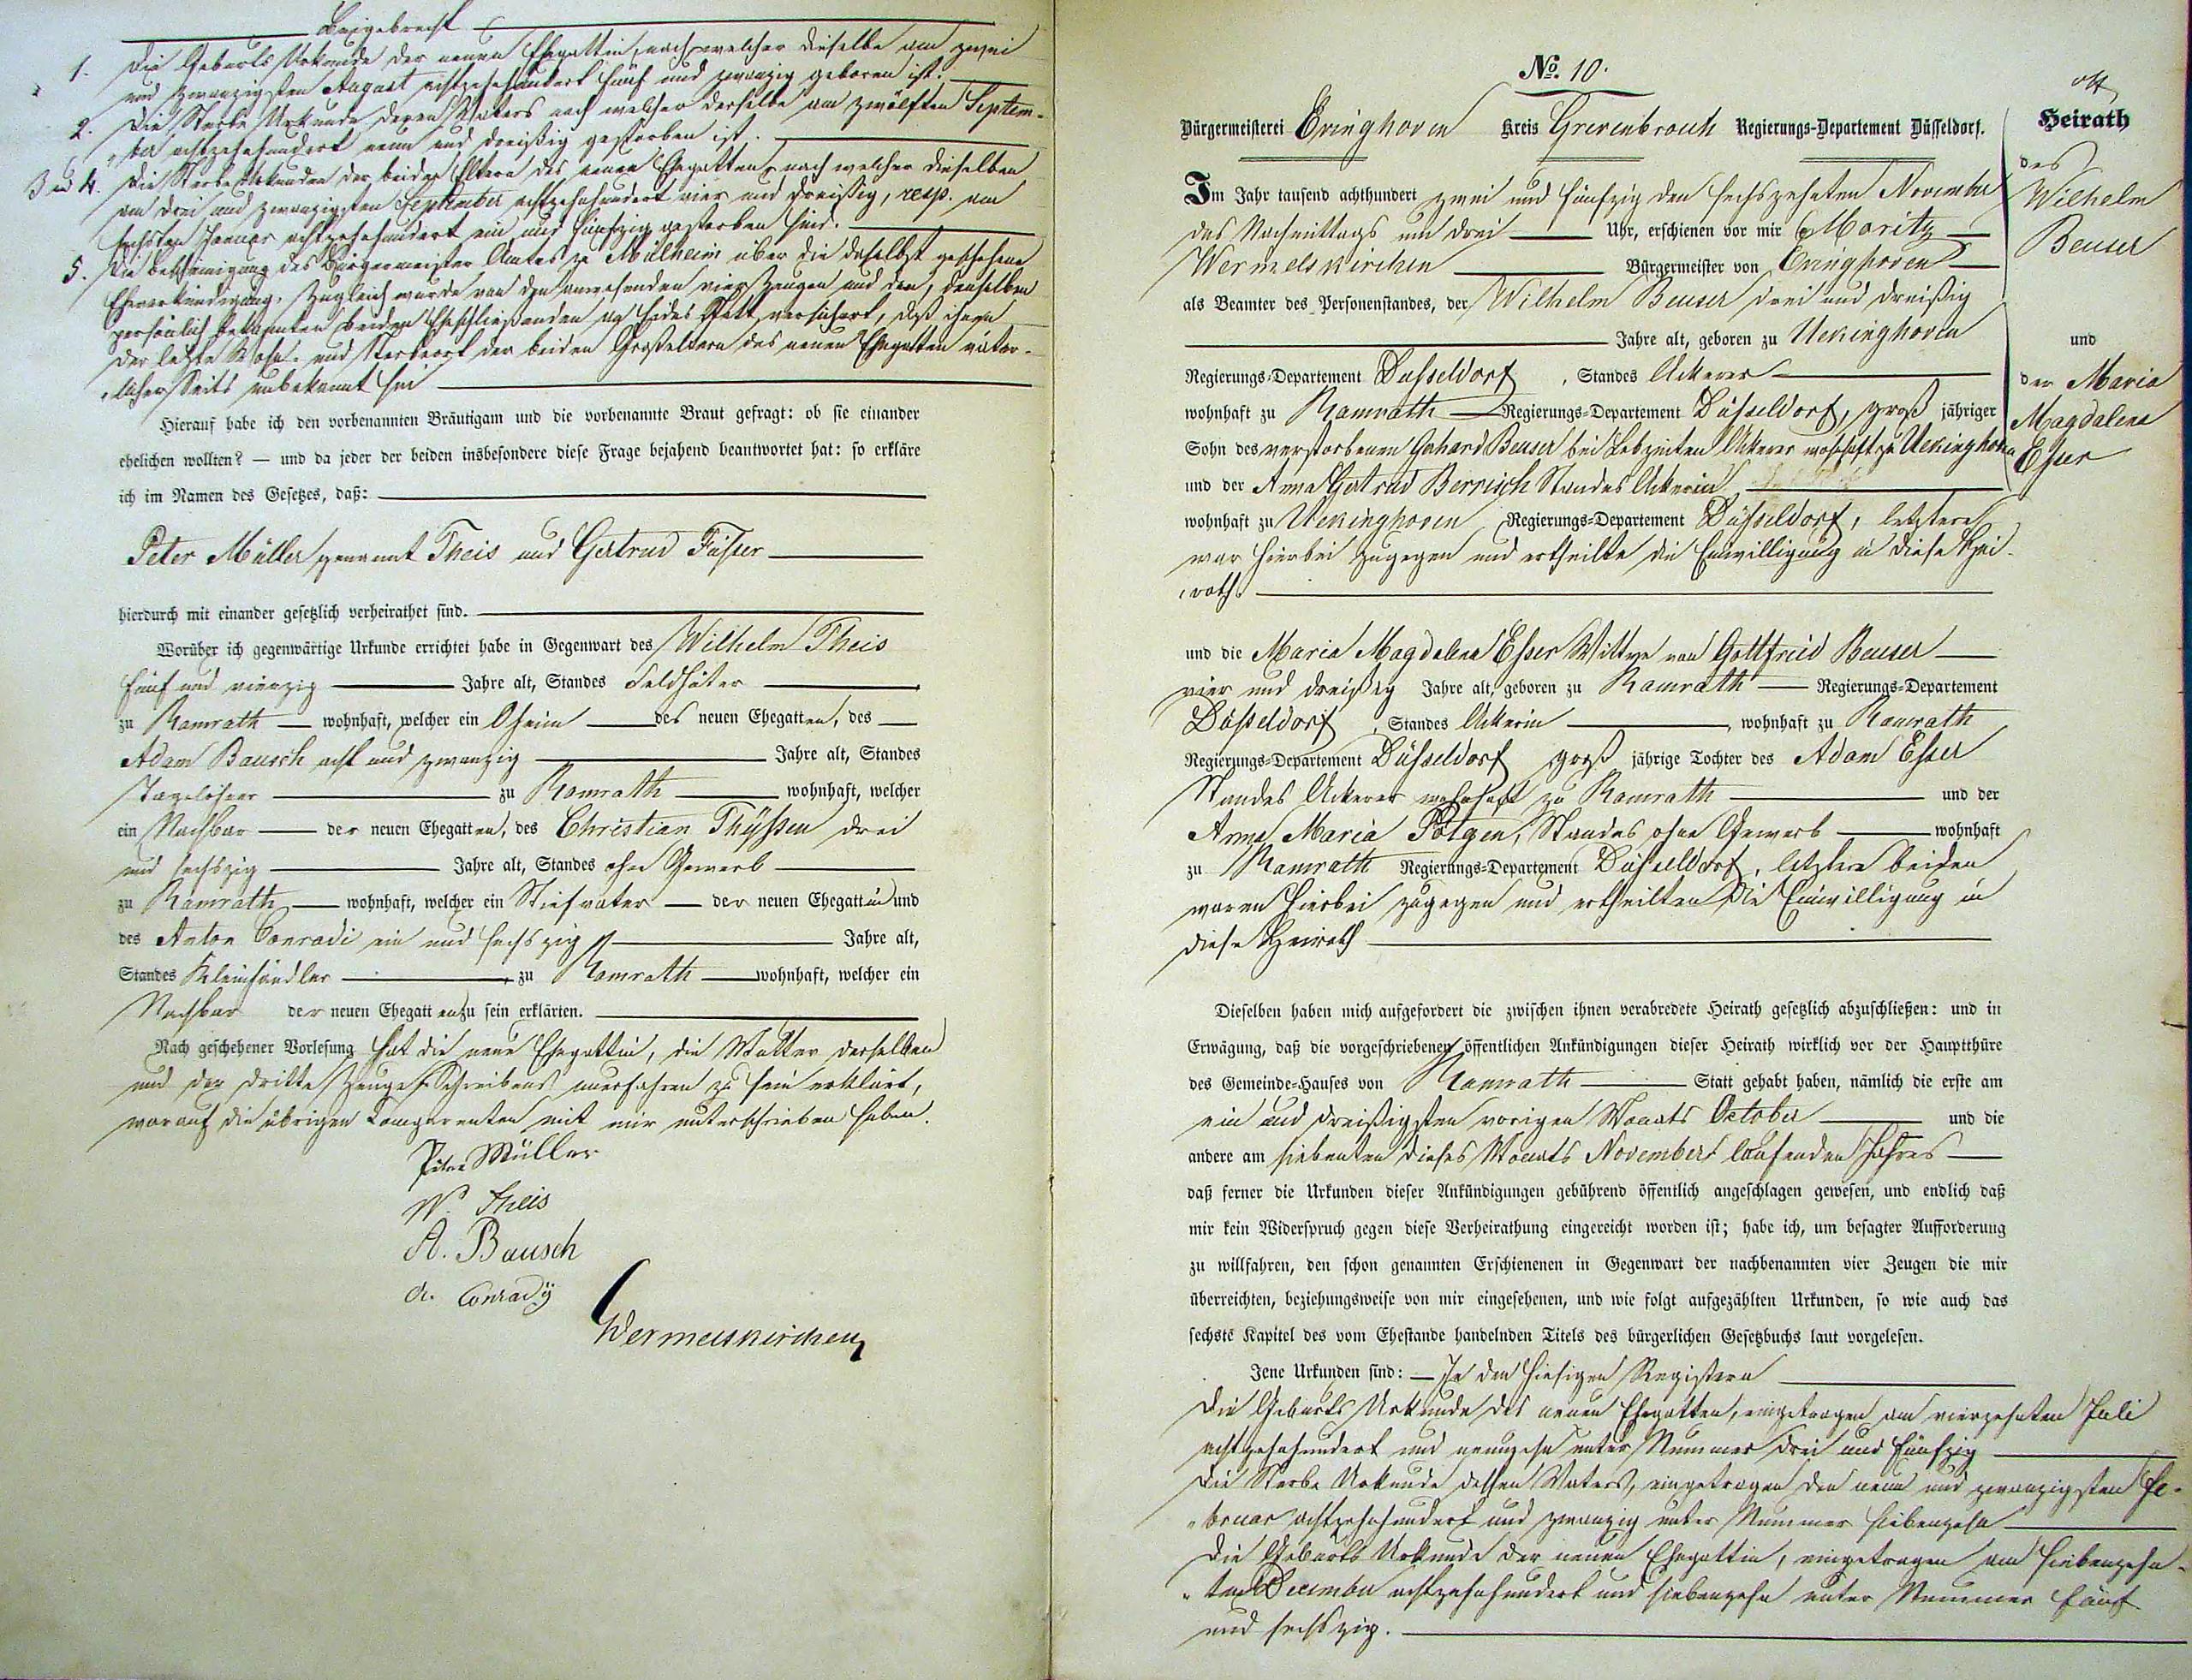 Beigebracht
1. Die Geburts Urkunde der neuen Ehegattin, nach welcher dieselbe am zwei
und zwanzigsten August achtzehnhundert fünf und zwanzig geboren ist.
2. Die Sterbe Urkunde deren Vaters nach welcher derselbe am zwölften Septem-
ber achtzehnhundert neun und dreißig gestorben ist.
3 und 4. Die Sterbe Urkunden der beiden Eltern des neuen Ehegatten, nach welcher dieselben
am drei und zwanzigsten September achtzehnhundert vier und dreißig, resp. am
sechsten Januar achtzehnhundert ein und fünfzig gestorben sind.
5. Die Bescheinigung des Bürgermeister Amtes zu Mülheim über die daselbst geschehene
Eheverkündigung. Zugleich wurde von den anwesenden vier Zeugen und den, denselben
persönlich bekannten beiden Eheschließenden an Eides Statt versichert, daß ihnen
der letzte Wohn- und Sterbeort der beiden Großeltern des neuen Ehegatten väter-
licher Seits unbekannt sei
Hierauf habe ich den vorbenannten Bräutigam und die vorbenannte Braut gefragt: ob sie einander
ehelichen wollten? — und da jeder der beiden insbesondere diese Frage bejahend beantwortet hat: so erkläre
ich im Namen des Gesetzes, daß:
Peter Müller genannt Theis und Gertrud Füsser
hierdurch mit einander gesetzlich verheirathet sind.
Worüber ich gegenwärtige Urkunde errichtet habe in Gegenwart des Wilhelm Theis
fünf und vierzig Jahre alt, Standes Feldhüter
zu Ramrath wohnhaft, welcher ein Oheim des neuen Ehegatten, des
Adam Bausch acht und zwanzig Jahre alt, Standes
Tagelöhner zu Ramrath wohnhaft, welcher
ein Nachbar der neuen Ehegatten, des Christian Thyssen drei
und sechszig Jahre alt, Standes ohne Gewerb
zu Ramrath wohnhaft, welcher ein Stiefvater der neuen Ehegattin und
des Anton Conradi ein und sechszig Jahre alt,
Standes Kleinhändler zu Ramrath wohnhaft, welcher ein
Nachbar der neuen Ehegatten zu sein erklärten.
Nach geschehener Vorlesung hat die neue Ehegattin, die Mutter derselben
und der dritte Zeuge Schreibens unerfahren zu sein erklärt,
worauf die übrigen Comparenten mit mir unterschrieben haben.
Peter Müller
W. Theis
A. Bausch
A. Conrady
Wermelskirchen
No. 10.
Bürgermeisterei Evinghoven Kreis Grevenbroich Regierungs-Departement Düsseldorf.
Heirath
des
Wilhelm
Beuser
und
der Maria
Magdalena
Esser
Im Jahr tausend achthundert zwei und fünfzig den sechszehnten November
des Nachmittags um drei Uhr, erschienen vor mir Moritz
Wermelskirchen Bürgermeister von Evinghoven
als Beamter des Personenstandes, der Wilhelm Beuser drei und dreißig
Jahre alt, geboren zu Uekinghoven
Regierungs-Departement Düsseldorf, Standes Ackerer
wohnhaft zu Ramrath Regierungs-Departement Düsseldorf, groß jähriger
Sohn des verstorbenen Gerhard Beuser bei Lebzeiten Ackerer wohnhaft zu Uekinghoven
und der Anna Gertrud Berrisch Standes Ackerin
wohnhaft zu Uekinghoven Regierungs-Departement Düsseldorf, letztere
war hierbei zugegen und ertheilte die Einwilligung in diese Hei-
rath.
und die Maria Magdalena Esser Wittwe von Gottfried Beuser
vier und dreißig Jahre alt, geboren zu Ramrath Regierungs-Departement
Düsseldorf, Standes Ackerin, wohnhaft zu Ramrath
Regierungs-Departement Düsseldorf groß jährige Tochter des Adam Esser
Standes Ackerer wohnhaft zu Ramrath und der
Anna Maria Pötgen, Standes ohne Gewerb wohnhaft
zu Ramrath Regierungs-Departement Düsseldorf, letztere beiden
waren hierbei zugegen und ertheilten die Einwilligung in
diese Heirath
Dieselben haben mich aufgefordert die zwischen ihnen verabredete Heirath gesetzlich abzuschließen: und in
Erwägung, daß die vorgeschriebenen öffentlichen Ankündigungen dieser Heirath wirklich vor der Hauptthüre
des Gemeinde-Hauses von Ramrath Statt gehabt haben, nämlich die erste am
ein und dreißigsten vorigen Monats October und die
andere am siebenten dieses Monats November laufenden Jahres
daß ferner die Urkunden dieser Ankündigungen gebührend öffentlich angeschlagen gewesen, und endlich daß
mir kein Widerspruch gegen diese Verheirathung eingereicht worden ist; habe ich, um besagter Aufforderung
zu willfahren, den schon genannten Erschienenen in Gegenwart der nachbenannten vier Zeugen die mir
überreichten, beziehungsweise von mir eingesehenen, und wie folgt aufgezählten Urkunden, so wie auch das
sechste Kapitel des vom Ehestande handelnden Titels des bürgerlichen Gesetzbuchs laut vorgelesen.
Jene Urkunden sind: — In den hiesigen Registern
Die Geburts Urkunde des neuen Ehegatten, eingetragen am vierzehnten Juli
achtzehnhundert und neunzehn unter Nummer drei und fünfzig
Die Sterbe Urkunde dessen Vaters, eingetragen den neun und zwanzigsten Fe-
bruar achtzehnhundert und zwanzig unter Nummer siebenzehn
Die Geburts Urkunde der neuen Ehegattin, eingetragen am siebenzehn-
ten December achtzehnhundert und siebenzehn unter Nummer fünf
und sechszig.